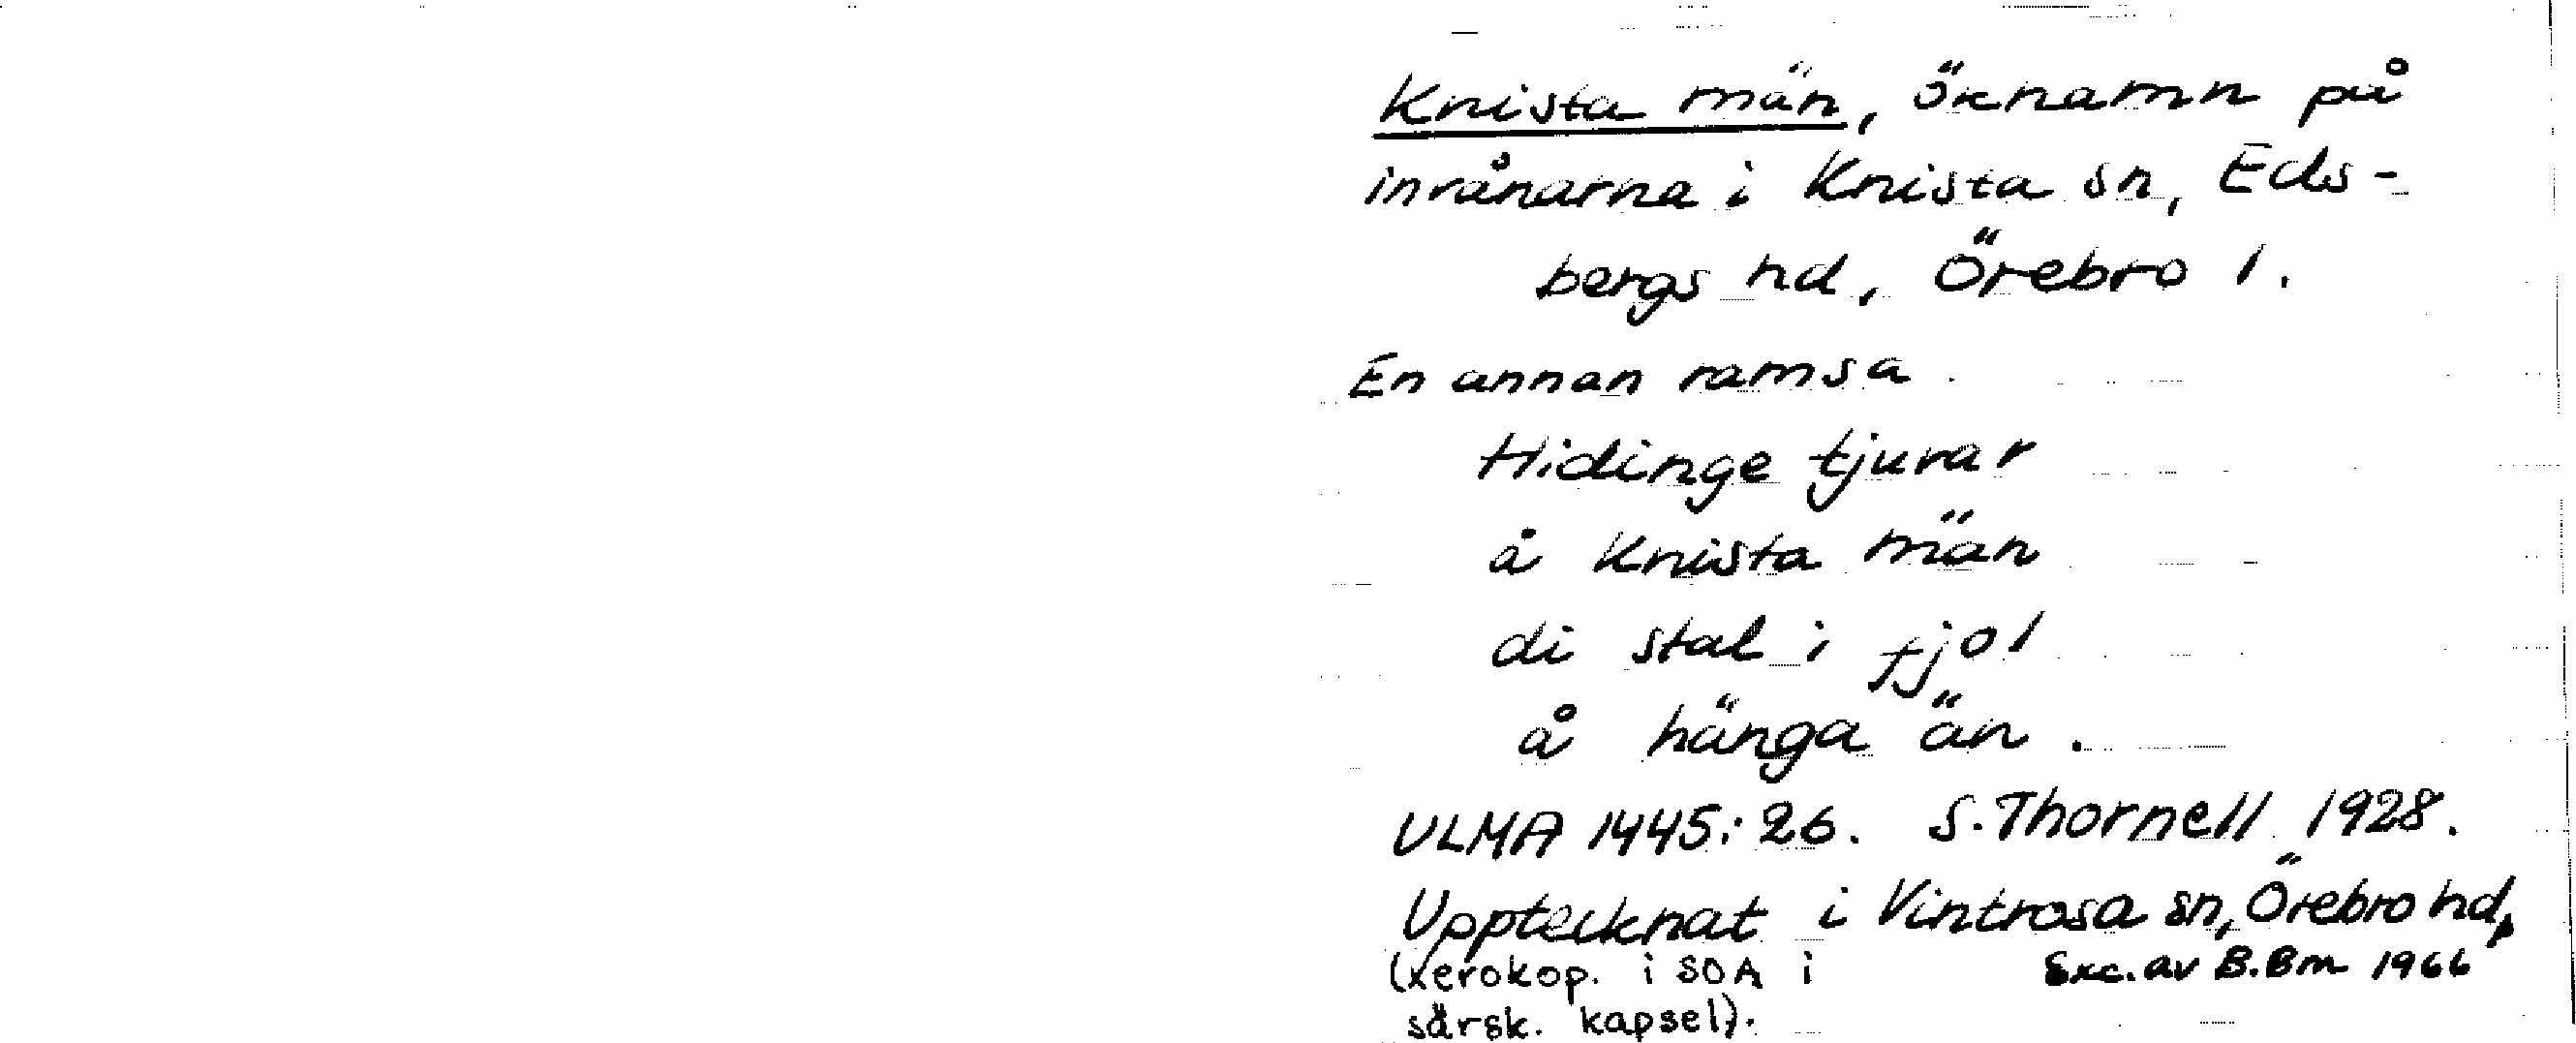 Knista män, öknamn på
invånarna i Knista sn, Eds-
bergs hd, Örebro l.
En annan ramsa
Hidinge tjurar
å Knista män
di stal i fjol
å hänga än.
ULMA 1445:26. S. Thornell 1928.
Upptecknat i Vintrosa sn, Örebro hd,
(xerokop. i SOA i Exc. av B.Bm 1966
särsk. kapsel).